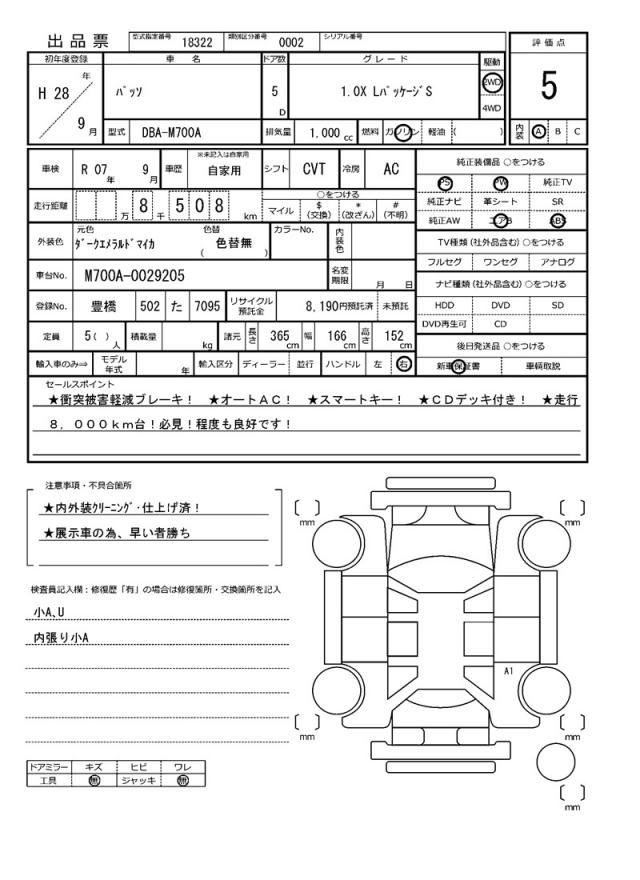 出品票 型式指定番号 18322 類別区分番号 0002 シリアル番号
初年度登録 車名 ドア数 グレード 駆動 評価点
H 28 年 9 月 パッソ 5 D 1.0X LパッケージS 2WD 4WD 5
型式 DBA-M700A 排気量 1.000 cc 燃料 ガソリン 軽油 ( ) 内装 A B C
車検 R 07 年 9 月 車歴 ※未記入は自家用 自家用 シフト CVT 冷房 AC 純正装備品 ○をつける
PS PW 純正TV
走行距離 万 8 千 508 km ○をつける マイル $ (交換) * (改ざん) # (不明) 純正ナビ 革シート SR
純正AW エアB ABS
外装色 元色 ダークエメラルドマイカ 色替 色替無 ( ) カラーNo. 内装色 TV種類 (社外品含む) ○をつける
フルセグ ワンセグ アナログ
車台No. M700A-0029205 名変期限 月 日 ナビ種類 (社外品含む) ○をつける
登録No. 豊橋 502 た 7095 リサイクル預託金 8,190円預託済 未預託 HDD DVD SD
DVD再生可 CD
定員 5 ( ) 人 積載量 kg 諸元 長さ 365 cm 幅 166 cm 高さ 152 cm 後日発送品 ○をつける
輸入車のみ⇒ モデル年式 年 輸入区分 ディーラー 並行 ハンドル 左 右 新車保証書 車輌取説
セールスポイント
★衝突被害軽減ブレーキ! ★オートAC! ★スマートキー! ★CDデッキ付き! ★走行
8,000km台!必見!程度も良好です!
注意事項・不具合箇所
★内外装クリーニング・仕上げ済!
★展示車の為、早い者勝ち
検査員記入欄:修復歴「有」の場合は修復箇所・交換箇所を記入
小A,U
内張り小A
ドアミラー キズ ヒビ ワレ
工具 無 ジャッキ 無
[ ] mm
[ ] mm
A1
[ ] mm
[ ] mm
[ ] mm